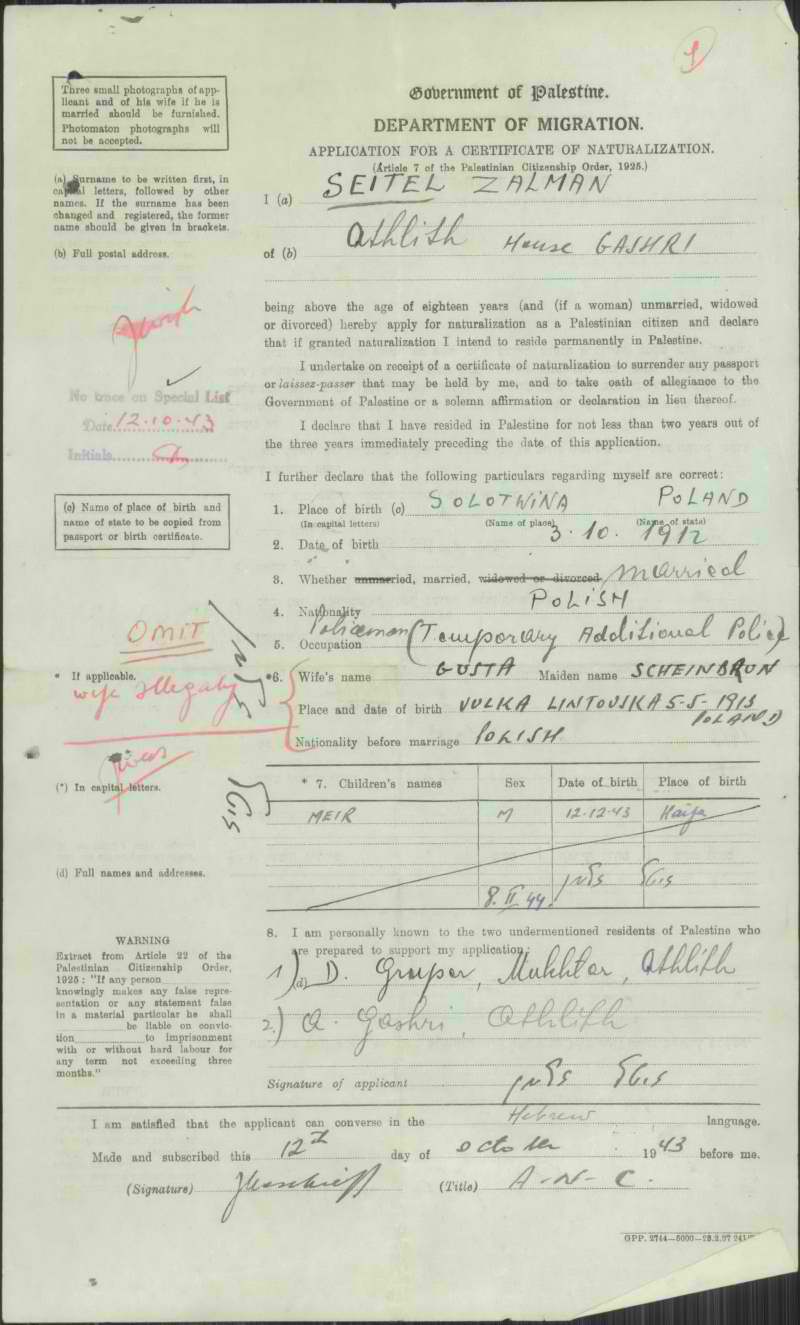 1
Three small photographs of app-
licant and of his wife if he is
married should be furnished.
Photomaton photographs will
not be accepted.
Government of Palestine.
DEPARTMENT OF MIGRATION.
APPLICATION FOR A CERTIFICATE OF NATURALIZATION.
(Article 7 of the Palestinian Citizenship Order, 1925.)
(a) Surname to be written first, in
capital letters, followed by other
names. If the surname has been
changed and registered, the former
name should be given in brackets.
I (a) SEITEL ZALMAN
(b) Full postal address.
of (b) Athlith House GASHRI
being above the age of eighteen years (and (if a woman) unmarried, widowed
or divorced) hereby apply for naturalization as a Palestinian citizen and declare
that if granted naturalization I intend to reside permanently in Palestine.
I undertake on receipt of a certificate of naturalization to surrender any passport
or laissez-passer that may be held by me, and to take oath of allegiance to the
Government of Palestine or a solemn affirmation or declaration in lieu thereof.
Jewish
No trace on Special List
Date 12.10.43
Initials
I declare that I have resided in Palestine for not less than two years out of
the three years immediately preceding the date of this application.
I further declare that the following particulars regarding myself are correct:
(c) Name of place of birth and
name of state to be copied from
passport or birth certificate.
1. Place of birth (c) SOLOTWINA POLAND
(In capital letters) (Name of place) (Name of state)
2. Date of birth 3.10. 1912
3. Whether unmarried, married, widowed or divorced married
4. Nationality POLISH
5. Occupation Policeman (Temporary Additional Police)
OMIT
* If applicable.
wife illegaly
*6. Wife's name GUSTA Maiden name SCHEINBRUN
Place and date of birth VULKA LINTOVSKA 5-5-1913
POLAND
Nationality before marriage POLISH
(*) In capital letters.
* 7. Children's names Sex Date of birth Place of birth
MEIR M 12-12-43 Haifa
8.II.44.
(d) Full names and addresses.
8. I am personally known to the two undermentioned residents of Palestine who
are prepared to support my application:
1) (d) D. Mukhtar, Athlith
2.) A. Gashri, Athlith
WARNING
Extract from Article 22 of the
Palestinian Citizenship Order,
1925: "If any person
knowingly makes any false repre-
sentation or any statement false
in a material particular he shall
be liable on convic-
tion to imprisonment
with or without hard labour for
any term not exceeding three
months."
Signature of applicant
I am satisfied that the applicant can converse in the Hebrew language.
Made and subscribed this 12th day of october 1943 before me.
(Signature) (Title) A-N-C.
GPP. 2744—5000—23.2.37